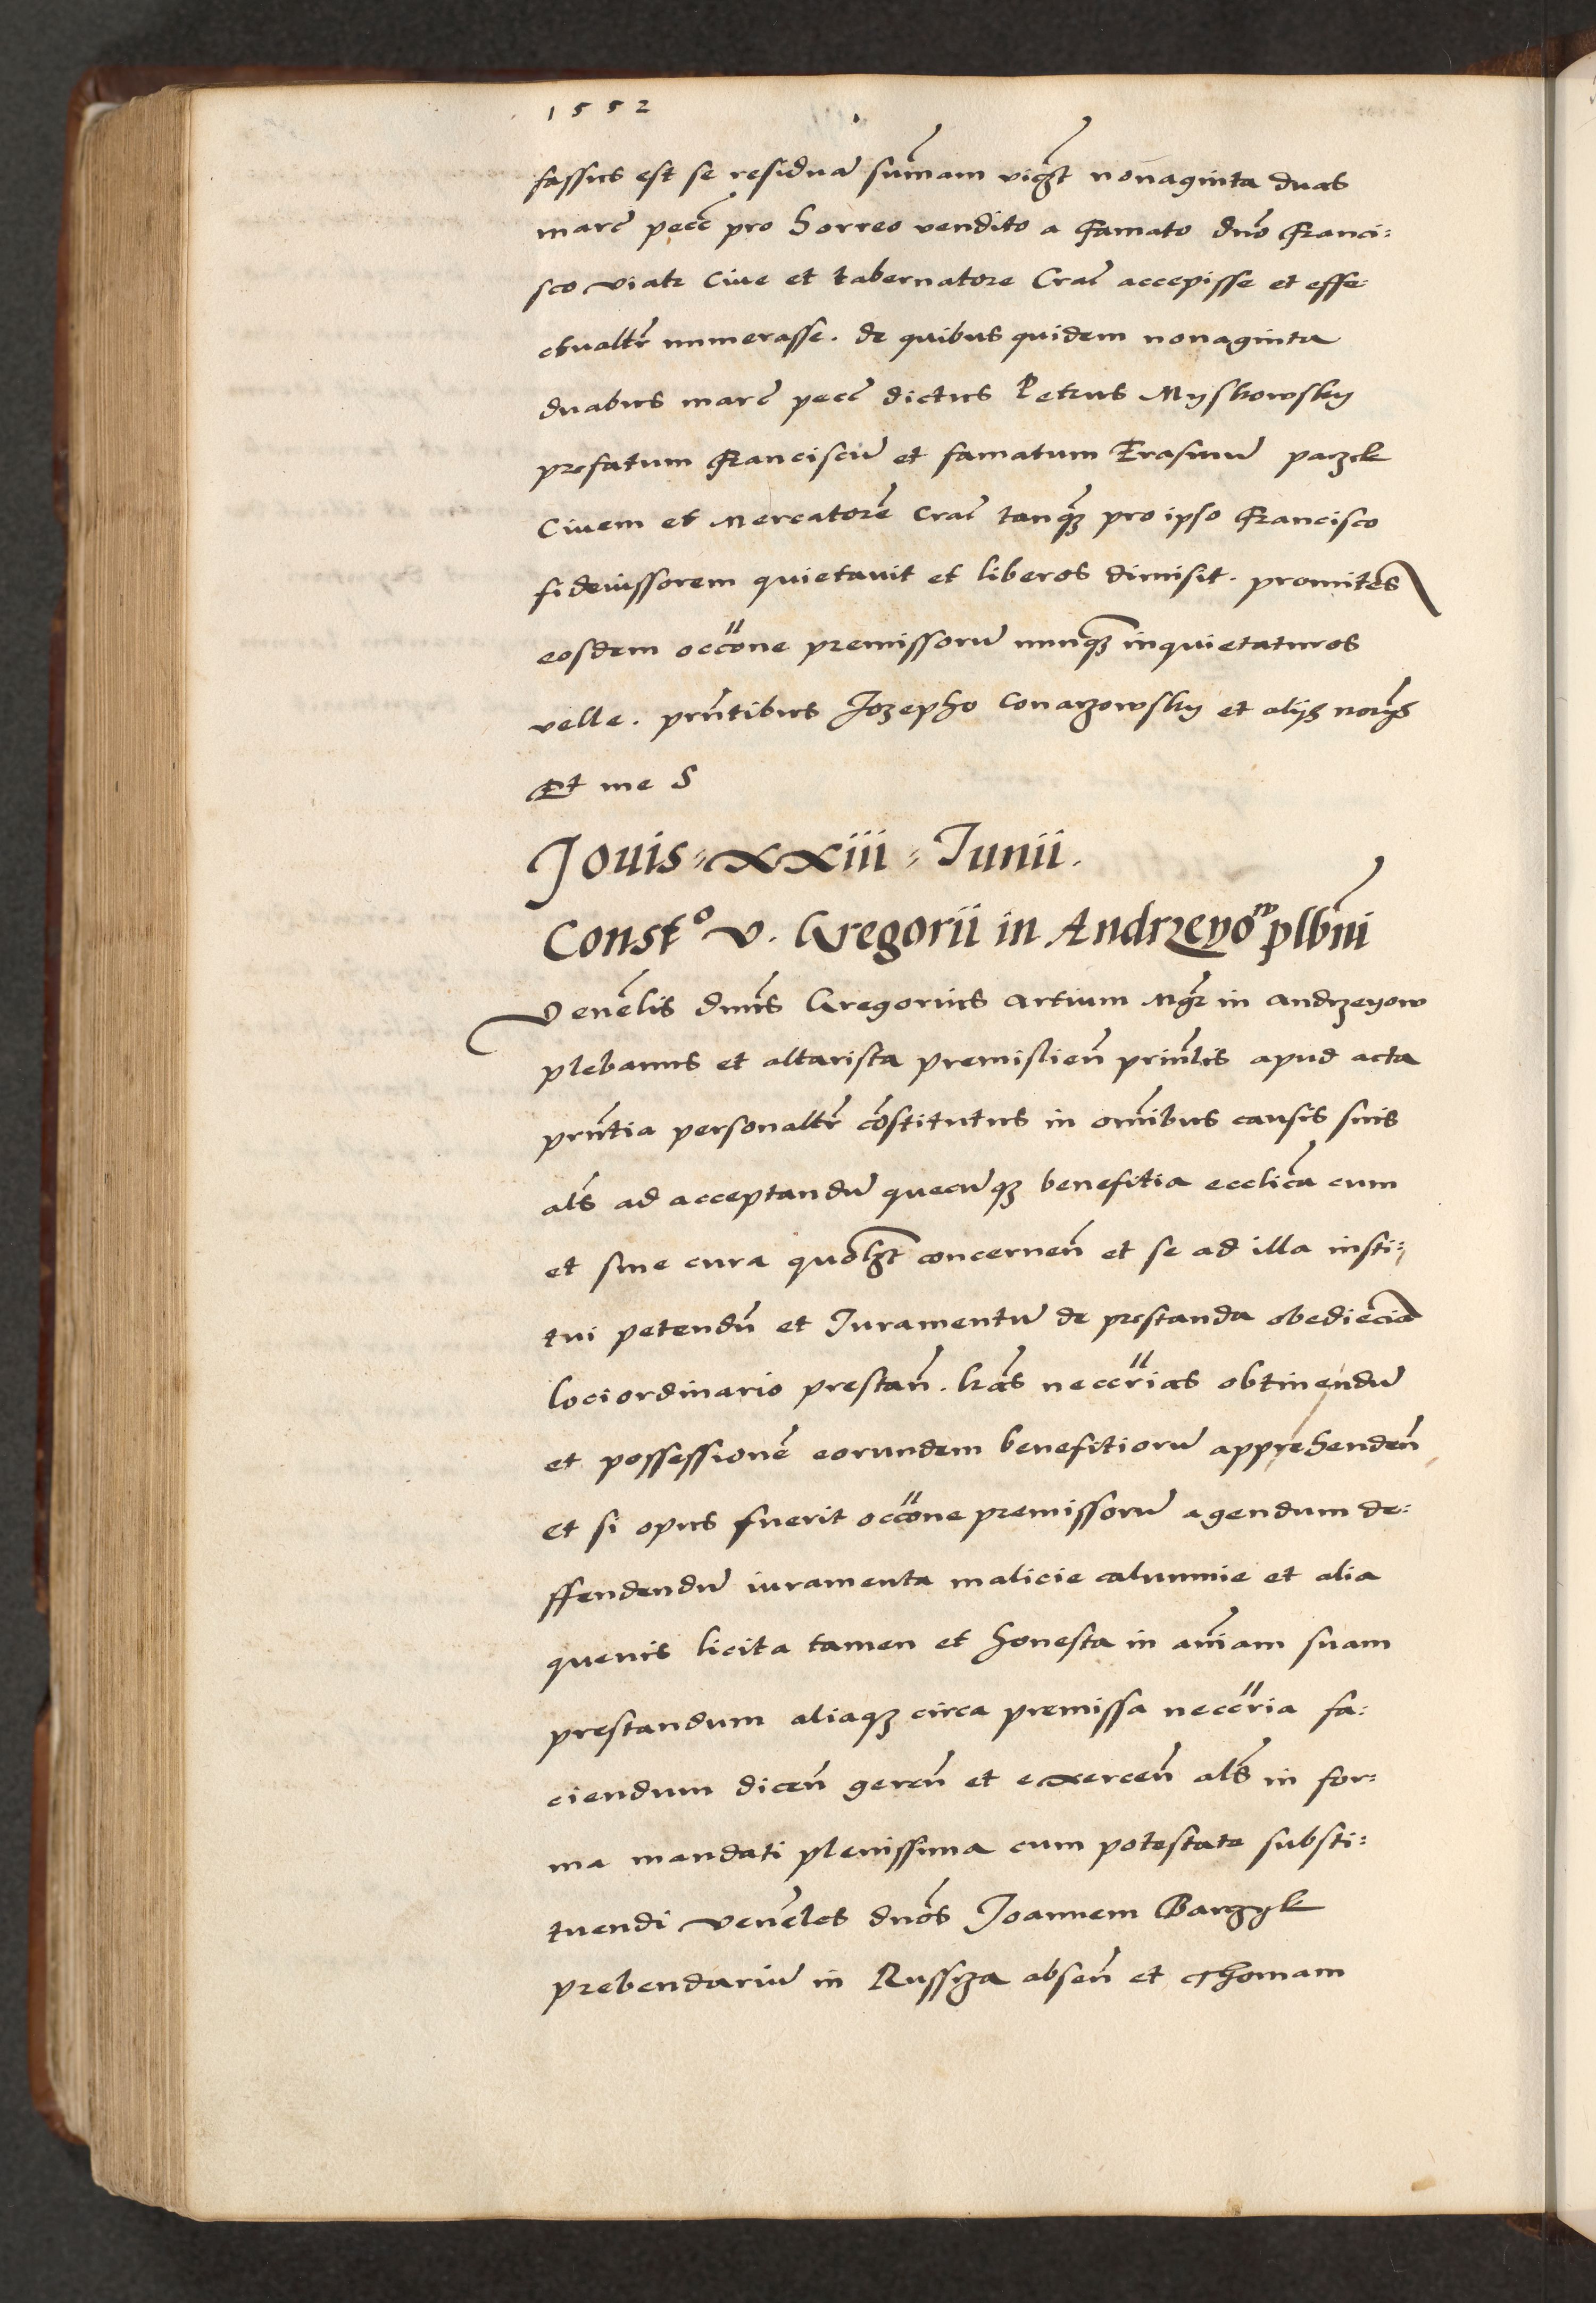 1552
fassus est se residuā sum̄am vigt̄ nonaginta duas
marc̄ pecc̄ pro horreo vendito a Famato dn̄o Franci:
sco viatr Ciue et tabernatore Crac̄ accepisse et effe:
ctualtr̄ numerasse. de quibus quidem nonaginta
duabus marc̄ pecc̄ dictus Petrus Myskowsky
prefatum Franciscū et famatum Erasmū parzck
Ciuem et Mercatorē Crac̄ tanq̄ȝ pro ipso Francisco
fideiussorem quietauit et liberos dimisit. promitēs
eosdem occōne premissorū nunq̄ȝ inquietaturos
velle. prn̄tibus Jozepho Conarzowsky et alijs
Et me S
Jouis = xxiii = Iunii.
Constº v. Gregorii in Andrzeyoʷ plbn̄i
Venēlis dn̄us Gregorius artium Mgr̄ in andrzeyow
plebanus et altarista premislien̄ prin̄lis apud acta
prn̄tia personaltr̄ cōstitutus in om̄ibus causis suis
als̄ ad acceptandū quecūqȝ benefitia ecclic̄a cum
et sine cura quōlȝt concernen̄ et se ad illa insti:
tui petendū et Iuramentū de prestanda obediēcia
loci ordinario prestan̄. lrās neccr̄ias obtinendū
et possessionē eorundem benefitiorū apprehenden̄
et si opus fuerit occōne premissorū agendum de:
ffendendū iuramenta malicie calumnie et alia
queuis licita tamen et honesta in an̄iam suam
prestandum aliaqȝ circa premissa neccr̄ia fa:
ciendum dicen̄ geren̄ et exercen̄ als̄ in for:
ma mandati plenissima cum potestate substi:
tuendi venēles dn̄os Joannem Barzyk
prebendariū in Russza absen̄ et Thomam